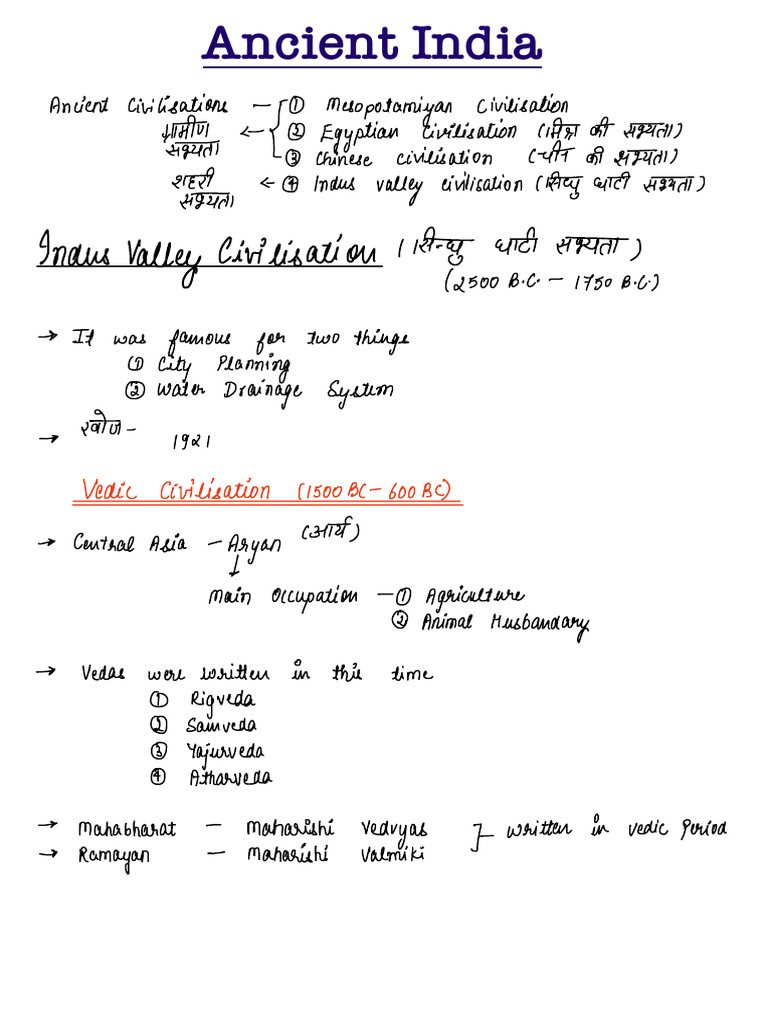 Ancient India
Ancient Civilisations — ① Mesopotamiyan Civilisation
ग्रामीण सभ्यता ← ② Egyptian Civilisation (मिश्र की सभ्यता)
③ Chinese civilisation (चीन की सभ्यता)
शहरी सभ्यता ← ④ Indus valley civilisation (सिन्धु घाटी सभ्यता)
Indus Valley Civilisation (सिन्धु घाटी सभ्यता)
(2500 B.C. – 1750 B.C.)
→ It was famous for two things
① City Planning
② Water Drainage System
→ खोज – 1921
Vedic Civilisation (1500 BC – 600 BC)
→ Central Asia – Aryan (आर्य)
↓
Main Occupation – ① Agriculture
② Animal Husbandary
→ Vedas were written in this time
① Rigveda
② Samveda
③ Yajurveda
④ Atharveda
→ Mahabharat – Maharishi Vedvyas
→ Ramayan – Maharishi Valmiki
} written in vedic Period